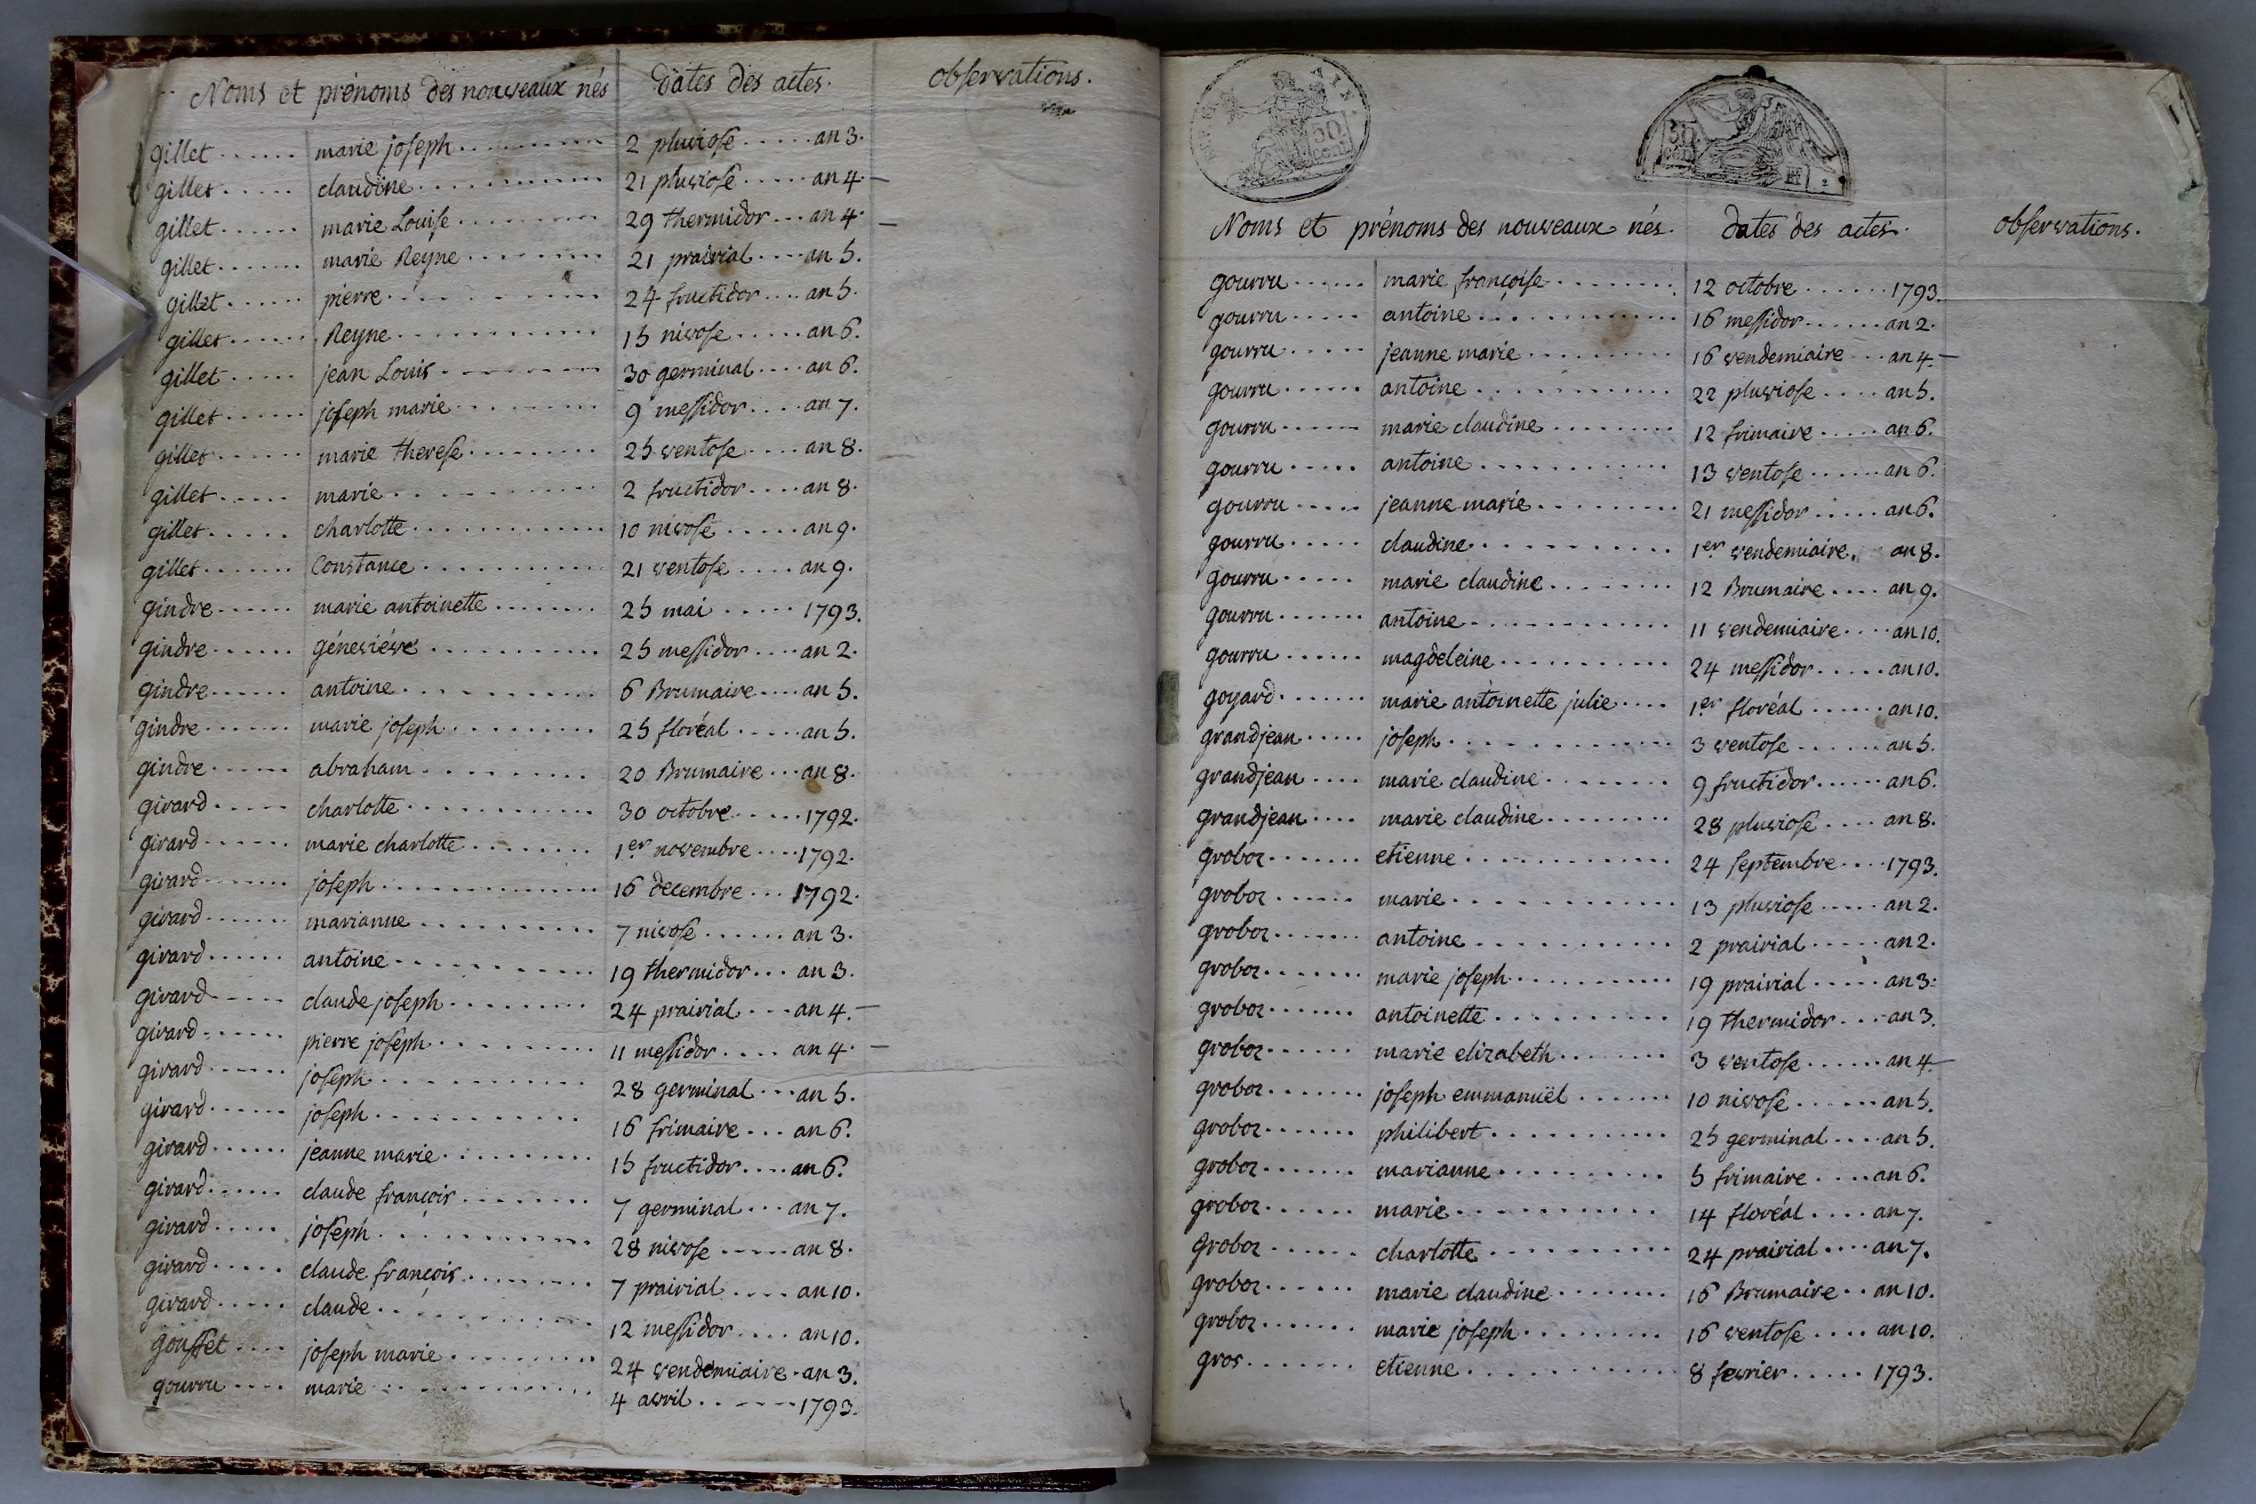 Noms et prénoms des nouveaux nés dates des actes. observations.
gillet marie joseph 2 pluviose an 3.
gillet claudine 21 pluviose an 4.
gillet marie Louise 29 thermidor an 4.
gillet marie Reyne 21 prairial an 5.
gillet pierre 24 fructidor an 5.
gillet Reyne 15 nivose an 6.
gillet jean Louis 30 germinal an 6.
gillet joseph marie 9 messidor an 7.
gillet marie therese 25 ventose an 8.
gillet marie 2 fructidor an 8.
gillet charlotte 10 nivose an 9.
gillet Constance 21 ventose an 9.
gindre marie antoinette 25 mai 1793.
gindre généviéve 25 messidor an 2.
gindre antoine 6 Brumaire an 5.
gindre marie joseph 25 floréal an 5.
gindre abraham 20 Brumaire an 8.
girard charlotte 30 octobre 1792.
girard marie charlotte 1er novembre 1792.
girard joseph 16 decembre 1792.
girard marianne 7 nivose an 3.
girard antoine 19 thermidor an 3.
girard claude joseph 24 prairial an 4.
girard pierre joseph 11 messidor an 4.
girard joseph 28 germinal an 5.
girard joseph 16 frimaire an 6.
girard jeanne marie 15 fructidor an 6.
girard claude françois 7 germinal an 7.
girard joseph 28 nivose an 8.
girard claude françois 7 prairial an 10.
girard claude 12 messidor an 10.
gousset joseph marie 24 vendemiaire an 3.
gourru marie 4 avril 1793.
50 cen
50 cen
Noms et prénoms des nouveaux nés. dates des actes. observations.
gourru marie françoise 12 octobre 1793.
gourru antoine 16 messidor an 2.
gourru jeanne marie 16 vendemiaire an 4.
gourru antoine 22 pluviose an 5.
gourru marie claudine 12 frimaire an 6.
gourru antoine 13 ventose an 6.
gourru jeanne marie 21 messidor an 6.
gourru claudine 1er vendemiaire. an 8.
gourru marie claudine 12 Brumaire an 9.
gourru antoine 11 vendemiaire an 10.
gourru magdeleine 24 messidor an 10.
goyard marie antoinette julie 1er floréal an 10.
grandjean joseph 3 ventose an 5.
grandjean marie claudine 9 fructidor an 6.
grandjean marie claudine 28 pluviose an 8.
groboz etienne 24 septembre 1793.
groboz marie 13 pluviose an 2.
groboz antoine 2 prairial an 2.
groboz marie joseph 19 prairial an 3.
groboz antoinette 19 thermidor an 3.
groboz marie elizabeth 3 ventose an 4
groboz joseph emmanuël 10 nivose an 5.
groboz philibert 25 germinal an 5.
groboz marianne 5 frimaire an 6.
groboz marie 14 floréal an 7.
groboz charlotte 24 prairial an 7.
groboz marie claudine 16 Brumaire an 10.
groboz marie joseph 16 ventose an 10.
gros etienne 8 fevrier 1793.